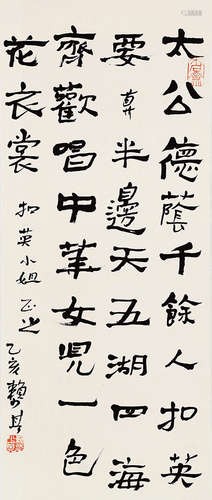 太公德蔭千餘人扣英
要算半邊天五湖四海
齊歡唱中華女兒一色
花衣裳
扣英小姐正之
乙亥